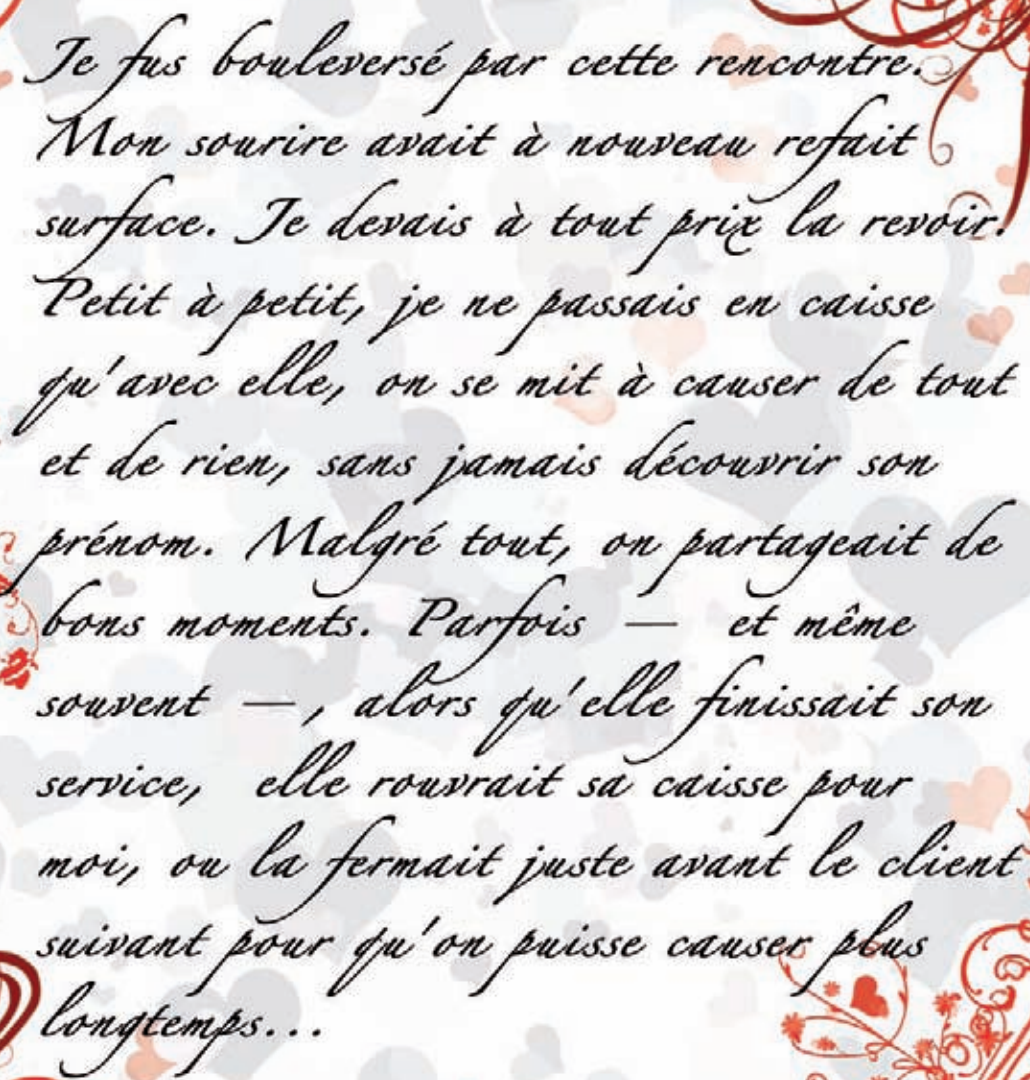 Je fus bouleversé par cette rencontre.
Mon sourire avait à nouveau refait
surface. Je devais à tout prix la revoir.
Petit à petit, je ne passais en caisse
qu'avec elle, on se mit à causer de tout
et de rien, sans jamais découvrir son
prénom. Malgré tout, on partageait de
bons moments. Parfois — et même
souvent —, alors qu'elle finissait son
service, elle rouvrait sa caisse pour
moi, ou la fermait juste avant le client
suivant pour qu'on puisse causer plus
longtemps...